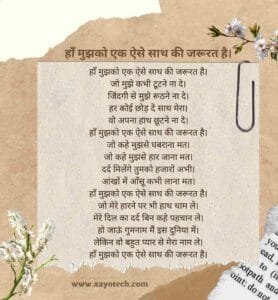 हाँ मुझको एक ऐसे साथ की जरूरत है।
हाँ मुझको एक ऐसे साथ की जरूरत है।
जो मुझे कभी टूटने ना दे।
जिंदगी से मुझे रूठने ना दे।
हर कोई छोड़ दें साथ मेरा।
वो अपना हाथ छूटने ना दे।
हाँ मुझको एक ऐसे साथ की जरूरत है।
जो कहे मुझसे घबराना मत।
जो कहे मुझसे हार जाना मत।
दर्द मिलेंगे तुमको हजारों अभी।
आंखों में आँसू कभी लाना मत।
हाँ मुझको एक ऐसे साथ की जरूरत है।
जो मेरे हारने पर भी हाथ थाम ले।
मेरे दिल का दर्द बिन कहे पहचान ले।
हो जाऊं गुमनाम मैं इस दुनिया में।
लेकिन वो बहुत प्यार से मेरा नाम ले।
हाँ मुझको एक ऐसे साथ की जरूरत है।
www.zayotech.com